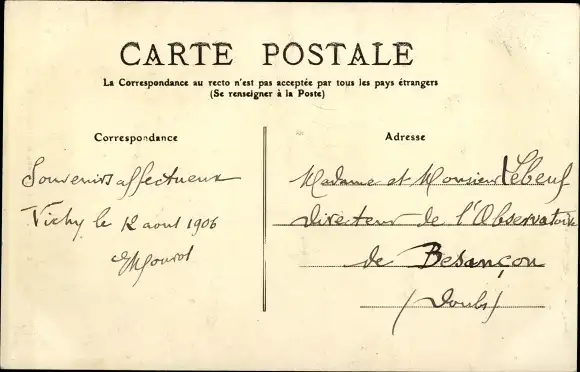 CARTE POSTALE
La Correspondance au recto n'est pas acceptée par tous les pays étrangers
(Se renseigner à la Poste)
Correspondance
Souvenirs affectueux
Vichy le 12 aout 1906
Adresse
Madame et Monsieur Lebeuf
Directeur de l'Observatoire
de Besançon
(Doubs)